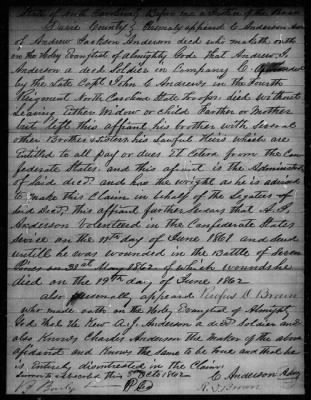 State of North Carolina Before me
Davie County. Personaly appeared C. Anderson
of Andrew Jackson Anderson decd who maketh oath
on the Holy Evanglist of Almighty God that Andrew J.
Anderson a decd Soldier in Company E.
by the Late Capt John C Andrews in the Fourth
Reagament North Carolina State troops. died without
Leaving Either Widow or child Farther or Mother
but left this affiant his brother with Several
other Brothers & Sisters his Lawful Heirs which are
Entitled to all pay or dues Et Cetera from the Con-
federate States. and this afiant is the Administrator
of Said decd. and has the wright as he is advised
to make this Claim in behalf of the Legates of
Said decd. this affiant further Swears that A. J.
Anderson Volenteerd in the Confederate States
Service on the day of June 1861 and Servd
untill he was wounded in the Battle of Seven
Pines on 31st May 1862 of which wounds he
died on the 19th day of June 1862
also personally appeared Rufus D Brown
who made oath on the Holy Evanglist of Almighty
God that He Knew A. J. Anderson a decd Soldier and
also Knows Charles Anderson the maker of the above
afidavit and Knows the Same to be true and that he
is Entirely disintrested in the Claim
Sworn to & Subscribed this Octo 1862
C Anderson
R. D. Brown